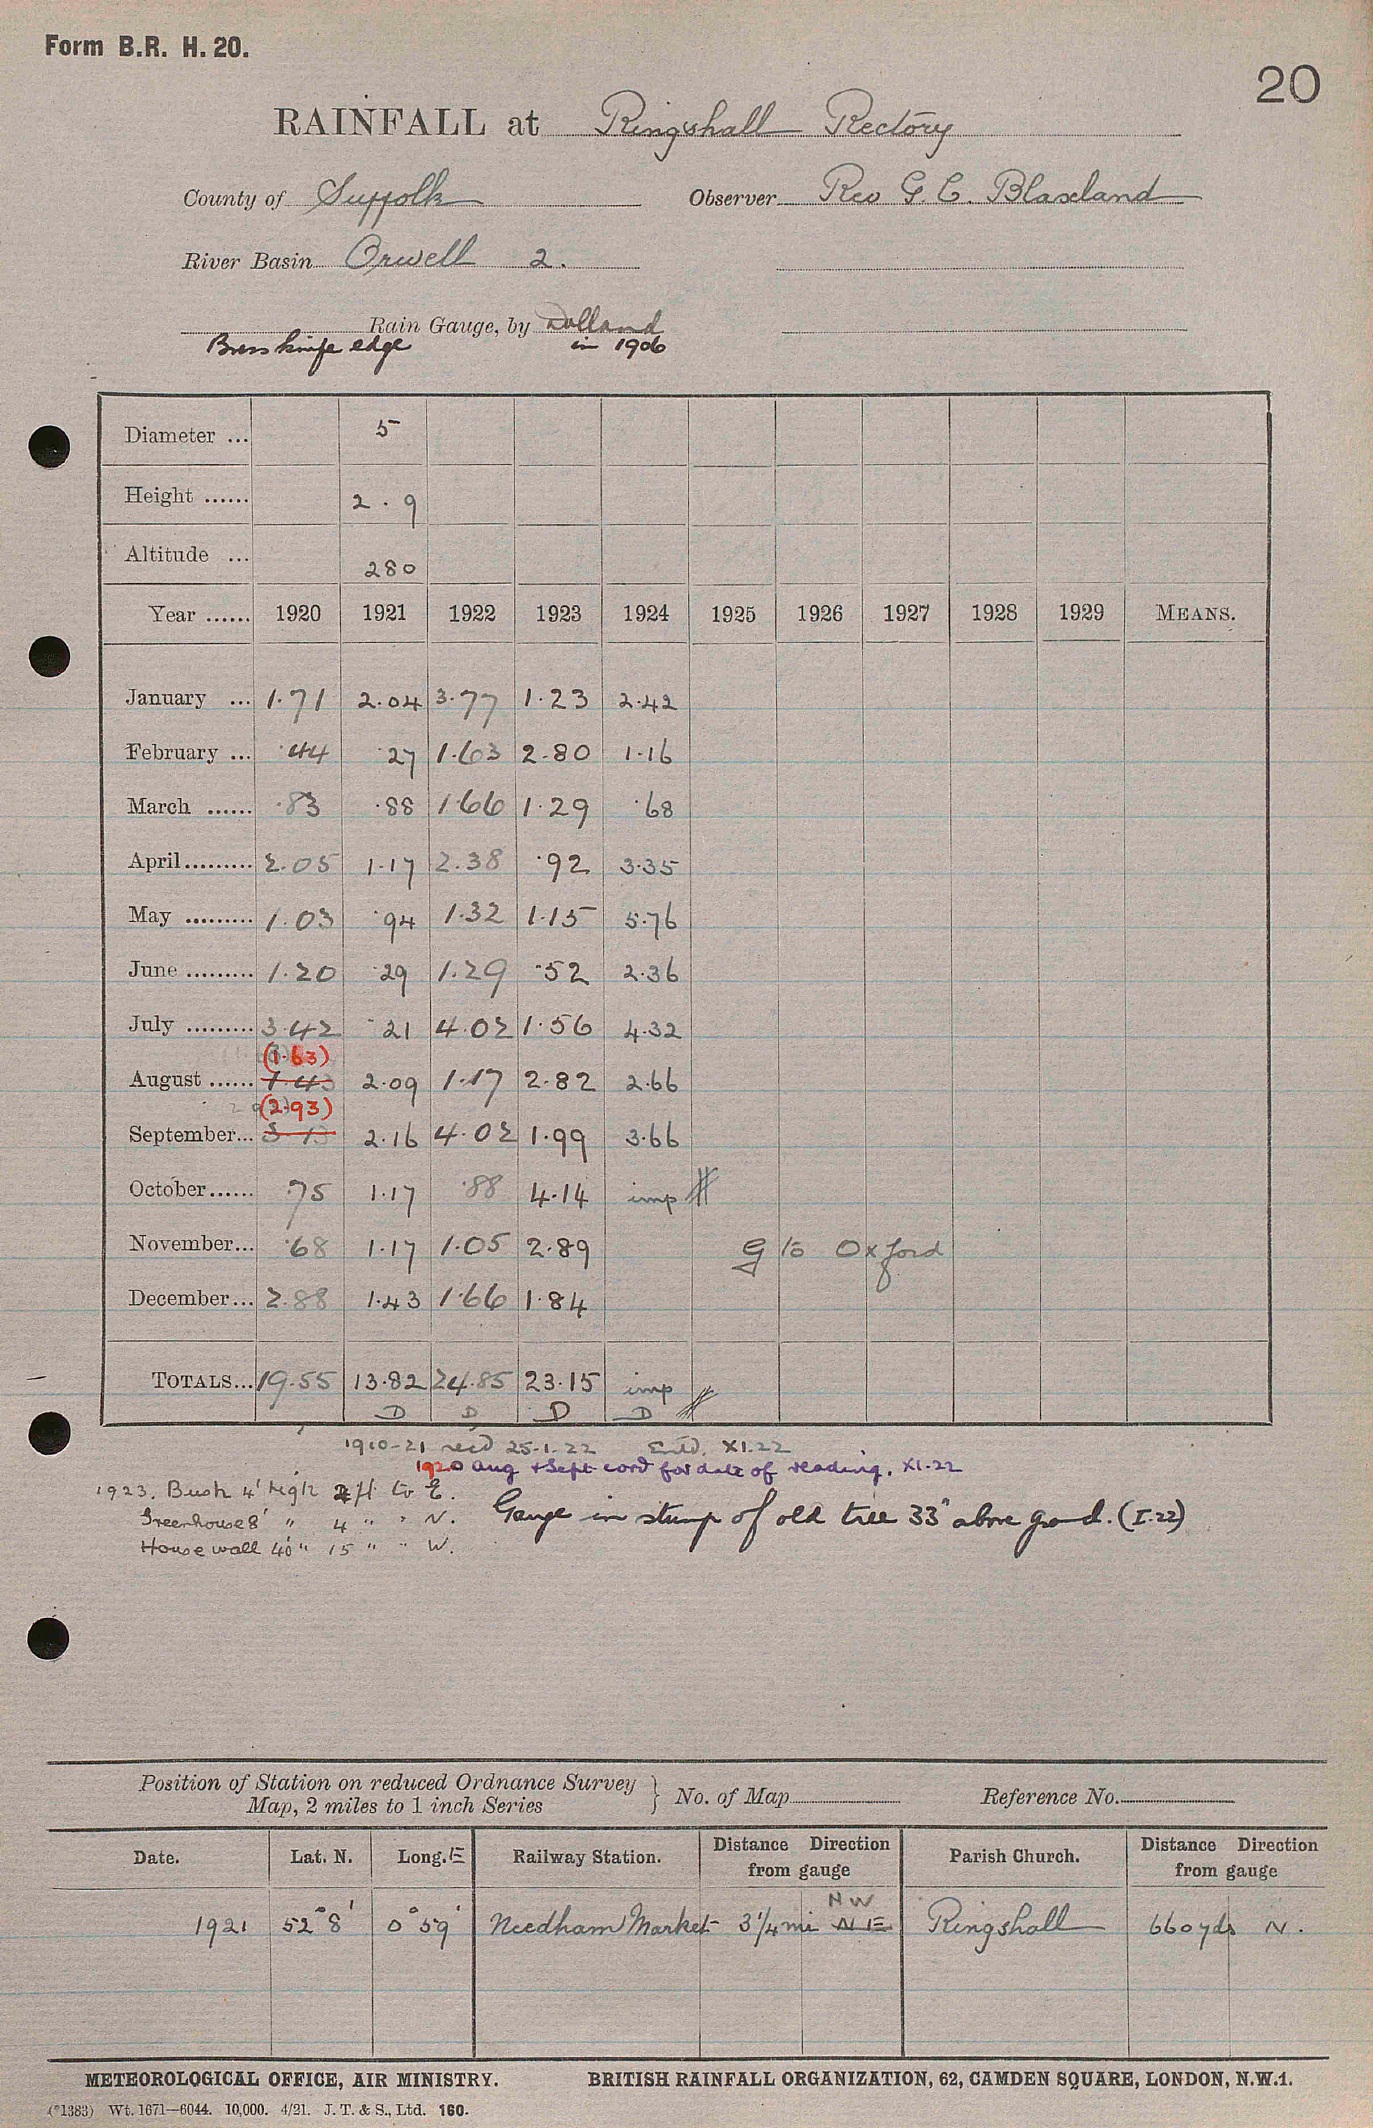 Form B.R. H. 20.
20
RAINFALL at Ringshall Rectory
County of Suffolk Observer Rev G. C. Blaxland
River Basin Orwell 2.
Rain Gauge, by Dolland
Brass knife edge in 1906
Diameter ... 5
Height ...... 2 . 9
Altitude ... 280
Year ...... 1920 1921 1922 1923 1924 1925 1926 1927 1928 1929 MEANS.
January ... 1.71 2.04 3.77 1.23 2.42
February ... .44 .27 1.63 2.80 1.16
March ...... .83 .88 1.66 1.29 .68
April......... 2.05 1.17 2.38 .92 3.35
May ......... 1.03 .94 1.32 1.15 5.76
June ......... 1.20 .29 1.29 .52 2.36
July ......... 3.42 .21 4.02 1.56 4.32
(1.63)
August ...... 1.43 2.09 1.17 2.82 2.66
(2.93)
September... 3.13 2.16 4.02 1.99 3.66
October...... .75 1.17 .88 4.14 imp
November... .68 1.17 1.05 2.89 G to Oxford
December... 2.88 1.43 1.66 1.84
TOTALS... 19.55 13.82 24.85 23.15 imp
D D D D
1910-21 recd 25.1.22 Entd. XI.22
1920 Aug + Sept cord for date of reading. XI.22
1923. Bush 4' high 2 ft to E.
Greenhouse 8' " 4 " " N. Gauge in stump of old tree 33" above grnd. (I.22)
House wall 40' " 15 " " W.
Position of Station on reduced Ordnance Survey
Map, 2 miles to 1 inch Series } No. of Map Reference No.
Date. Lat. N. Long. E Railway Station. Distance Direction from gauge Parish Church. Distance Direction from gauge
NW
1921 52° 8' 0° 59' Needham Market 3¼ mi NE Ringshall 660 yds N.
METEOROLOGICAL OFFICE, AIR MINISTRY. BRITISH RAINFALL ORGANIZATION, 62, CAMDEN SQUARE, LONDON, N.W.1.
(*1383) Wt. 1671—6044. 10,000. 4/21. J. T. & S., Ltd. 160.